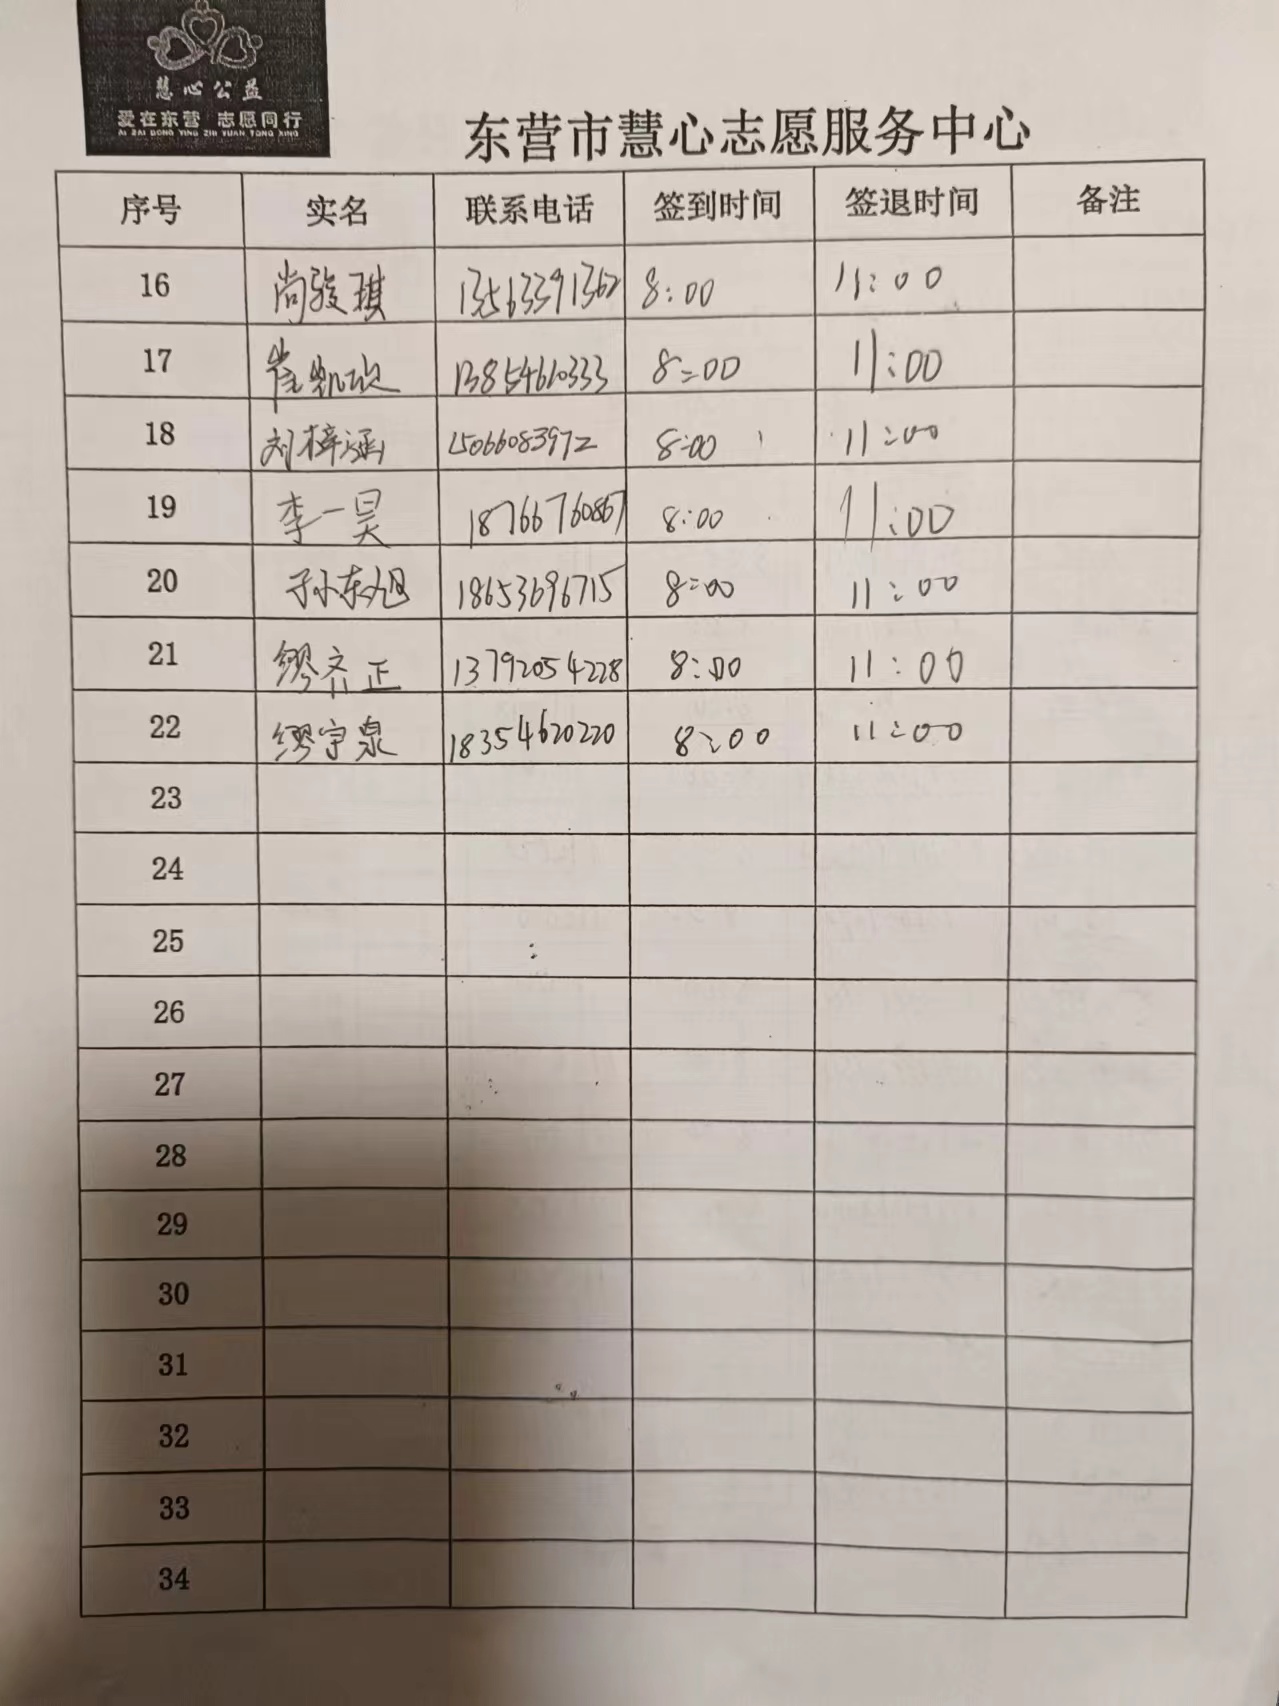 慧心公益
爱在东营 志愿同行
AI ZAI DONG YING ZHI YUAN TONG XING
东营市慧心志愿服务中心
序号 实名 联系电话 签到时间 签退时间 备注
16 尚骏琪 13563391362 8:00 11:00
17 崔凯欣 13854610333 8:00 11:00
18 刘梓涵 15066083972 8:00 11:00
19 李一昊 18766760867 8:00 11:00
20 孙东旭 18653696715 8:00 11:00
21 缪齐正 13792054228 8:00 11:00
22 缪宇泉 18354620220 8:00 11:00
23
24
25
26
27
28
29
30
31
32
33
34